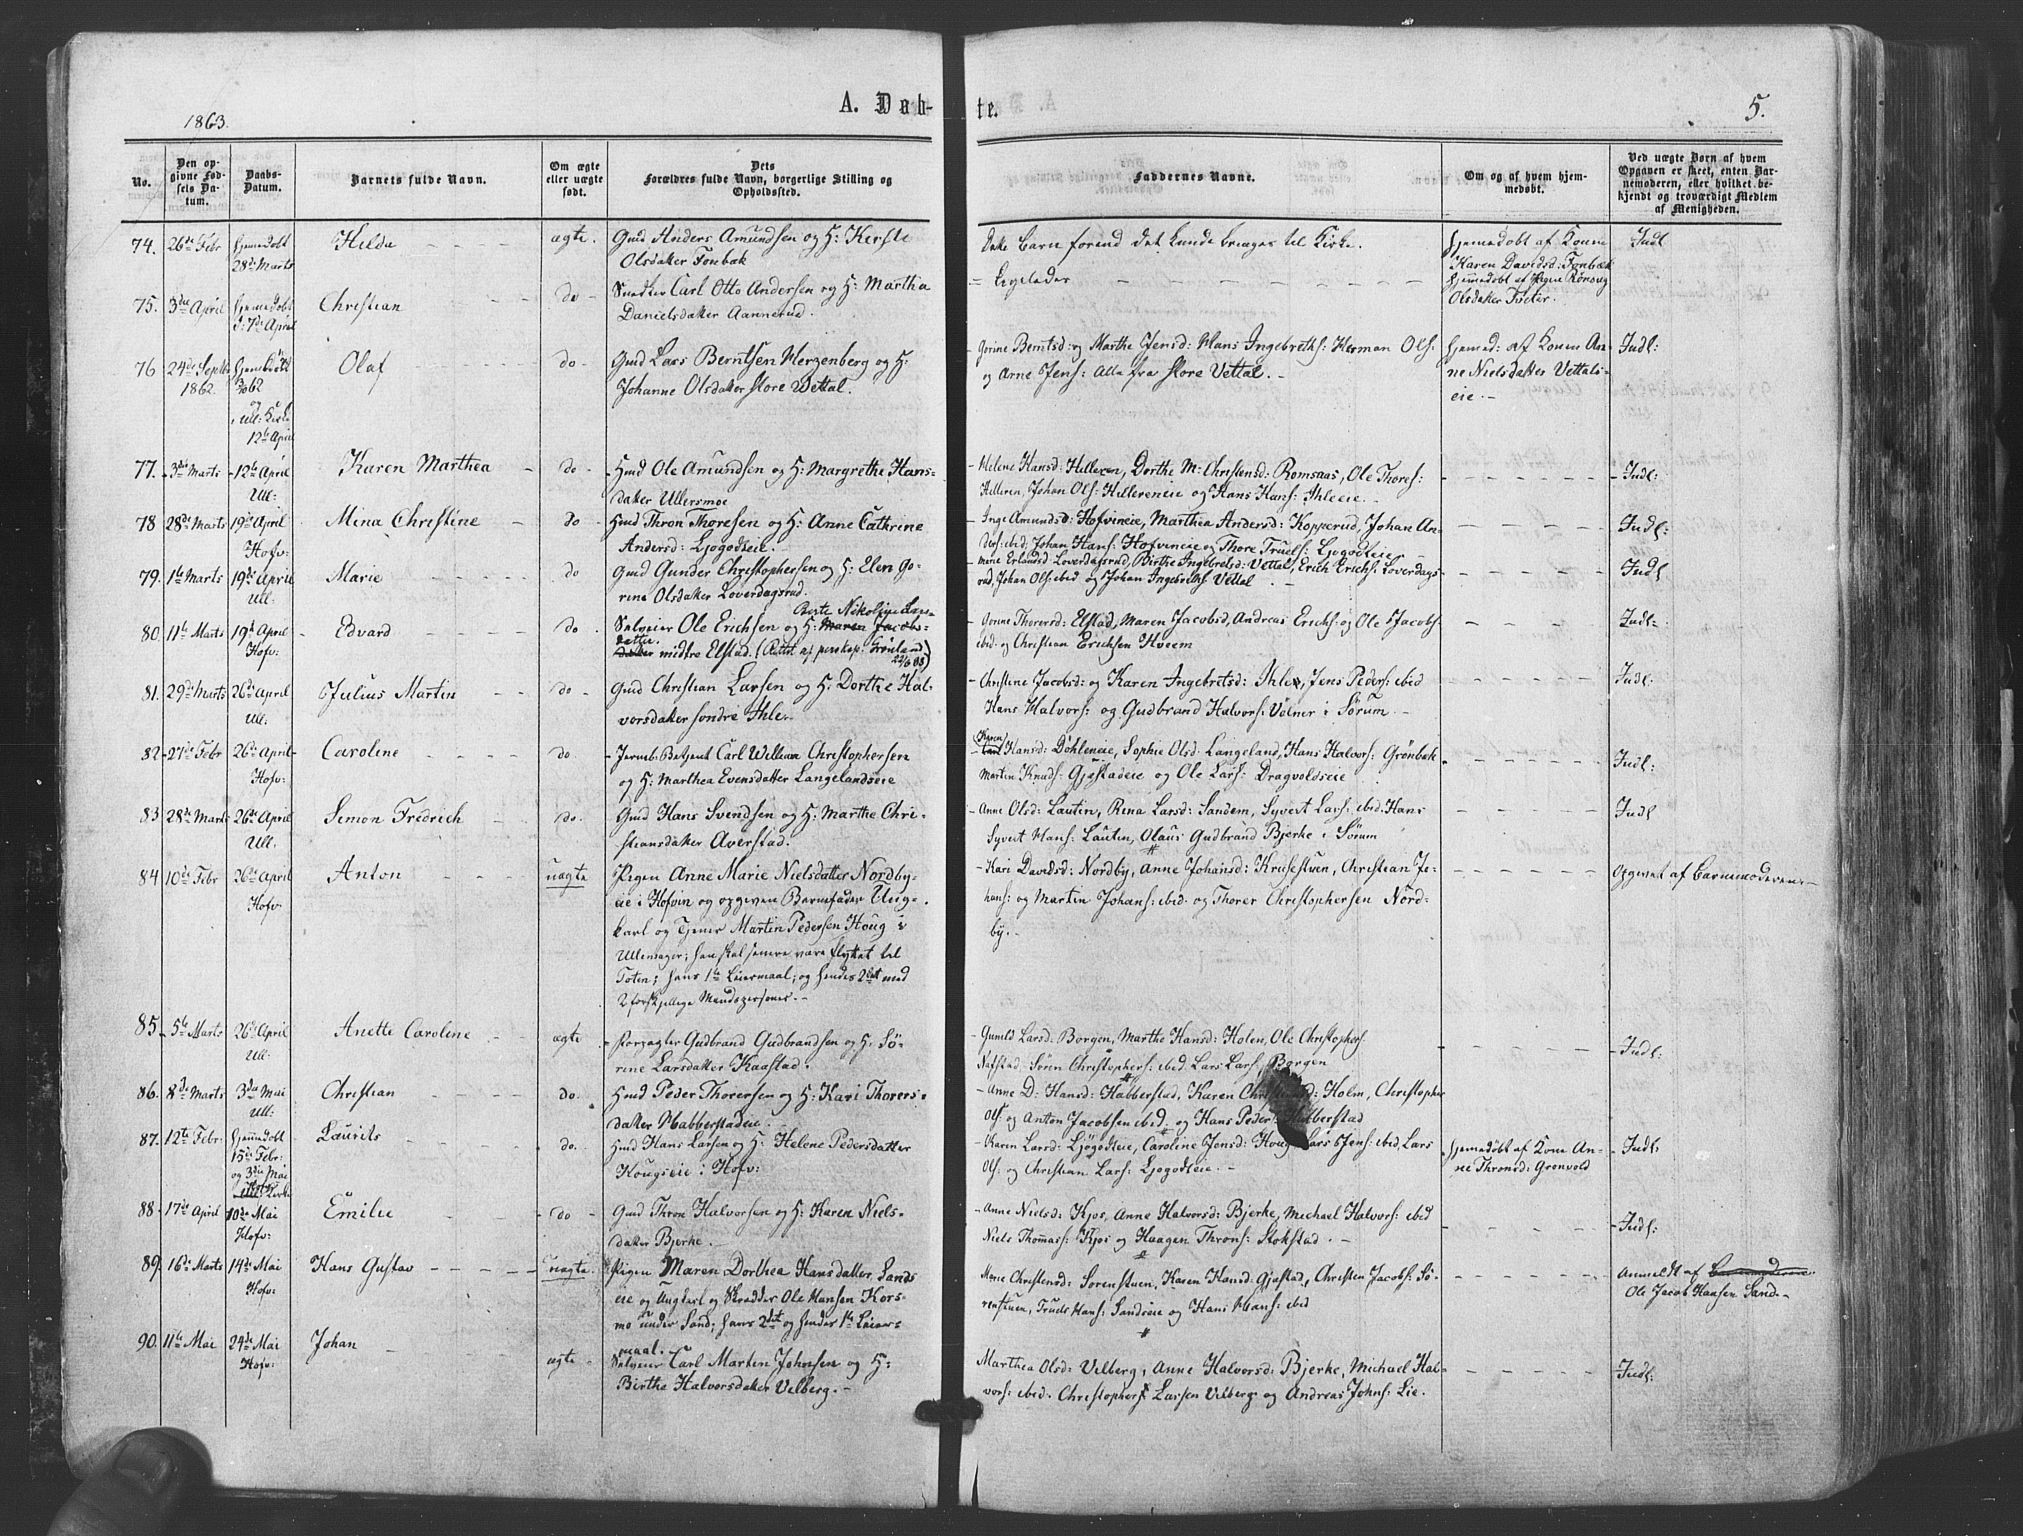 1863.
A. Døb-
te.
5.
No.
Den op-
givne Fød-
sels Da-
tum.
Daabs-
Datum.
Barnets fulde Navn.
Om ægte
eller uægte
født.
Dets
Forældres fulde Navn, borgerlige Stilling og
Opholdssted.
Faddernes Navne.
Om og af hvem hjem-
medøbt.
Ved uægte Børn af hvem
Opgaven er skeet, enten Bar-
nemoderen, eller hvilket be-
kjendt og troværdigt Medlem
af Menigheden.
74. 26de Febr
hjemedøbt
28de Marts
Hilda
ægte.
Gmd Anders Amundsen og H: Kersti
Olsdatter Fonbæk
Dette Barn forend det kunde bringes til Kirke.
hjemedøbt af Kone
Karen Davidsd: Fonbæk
Indl
75. 3die April
hjemedøbt
d: 7de April
Christian
do
Carl Otto Andersen og H: Martha
Danielsdatter Aannerud.
= Ligeledes
hjemedøbt af Pigen Rønnog
Olsdatter Tveter.
76 24de Septb
1862.
hjemedøbt
62
og
i Ull: Kirke
12te April
Olaf
do
Gmd Lars Berntsen Herzenberg og H.
Johanne Olsdatter Store Vettal.
Gorine Berntsd: og Marthe Jensd: Hans Ingebreths: Herman Ols:
og Arne Jens: Alle fra Store Vettal.
hjemed: af Konen An-
ne Nielsdatter Vettals-
eie.
Indl:
77. 3die Marts
12te April
Ull:
Karen Marthea
do
Hmd Ole Amundsen og H: Margrethe Hans-
datter Ullersmoe
Helene Hansd: Hilleren, Dorthe M: Christensd: Romsaas, Ole Thores:
Hilleren, Johan Ols: Hillereneie og Hans Hans: Ihleeie.
Indl:
78 28de Marts
19de April
Hofv:
Mina Christine
do
Hmd Thron Thoresen og H: Anne Cathrine
Andersd: Ljogodteie.
Inge Amundsd: Hofvineie, Marthea Andersd: Kopperud, Johan An-
ders: ibid, Johan Hans: Hofvineie og Thore Truels: Ljogodteie
Indl:
79. 1te Marts
19de April
Ull.
Marie
do
Gmd Gunder Christophersen og H: Elen Go-
rine Olsdatter Loverdagsrud.
Marie Erlandsd Loverdagsrud, Birthe Ingebretsd: Vettal, Erich Erichs: Loverdags-
rud, Johan Ols: ibid og Johan Ingebreths: Vettal
Indl
80. 11te Marts
19de April
Hofv:
Edvard
do
Berte Nikoline Lars-
Selveier Ole Erichsen og H: Maren Jacobs-
datter
datter midtre Elstad. (Rettet af perskap. Grønland
22/6 08)
Gonne Thorersd: Elstad, Maren Jacobsd, Andreas Erichs: og Ole Jacobs
ibid og Christian Erichsen Hveem
Indl:
81. 29de Marts
26de April
Ull.
Julius Martin
do
Gmd Christian Larsen og H: Dorthe Hal-
vorsdatter søndre Ihle.
Christine Jacobsd: og Karen Ingebretsd: Ihle, Jens Peders: ibid
Hans Halvors: og Gudbrand Halvors: Velner i Sørum.
Indl:
82 27de Febr
26de April
Hofv:
Caroline
do.
Jernb: Betjent Carl William Christophersen
og H: Marthea Evensdatter Langelandseie
Karen
Hansd: Døhleneie, Sophie Olsd: Langeland, Hans Halvors: Grønbæk
Martin Knuds: Gjøstadeie og Ole Lars: Dragvoldseie
Indl:
83 28de Marts
26de April
Ull.
Simon Fredrich
do.
Gmd Hans Svendsen og H. Marthe Chri-
stiansdatter Averstad.
Anne Olsd: Lautin, Rina Larsd: Sandem, Syvert Lars: ibid. Hans
Syvert Hans: Lautin, Olaus Gudbrand Bjerke i Sørum
Indl
84 10de Febr
26de April
Hofv
Anton
uægte
Pigen Anne Marie Nielsdatter Nordby-
eie i Hofvin og opgiven Barnefader Ung-
karl og Tjener Martin Pedersen Houg i
Ullensager; han skal senere være flyttet til
Toten; hans 1te Leiermaal; og hendes 2det med
2 forskjellige Mandspersoner.
Kari Davidsd: Nordby, Anne Johansd: Krusestuen, Christian Jo-
hans: og Martin Johans: ibid. og Thorer Christophersen Nord-
by.
Opgivet af Barnemoderen.
85. 5te Marts
26de April
Ull:
Anette Caroline
ægte
Forpagter Gudbrand Gudbrandsen og H. Sø-
rine Larsdatter Kaastad.
Gunild Larsd: Borgen, Marthe Hansd: Holen, Ole Christophers:
Nafstad, Søren Christophers: ibid. Lars Lars: Borgen
Indl:
86. 8de Marts
3die Mai
Ull:
Christian
do.
Hmd Peder Thorersen og H: Kari Thorers-
datter Habberstadeie.
Anne D. Hansd: Habberstad, Karen Holm, Christopher
Ols: og Anton Jacobsen ibid. og Hans Peder Habberstad
87. 12te Febr:
hjemedøbt
15de Febr:
og 3die Mai
Hofv
Kirke
Laurits
do.
Hmd Hans Larsen og H. Helene Pedersdatter
Hougseie i Hofv:
Karen Larsd: Ljøgodteie, Caroline Jensd: Houg, Lars Jens: ibid, Lars
Ols: og Christian Lars: Ljogodteie.
hjemedøbt af Kone An-
ne Thronsd: Gronvold
Indl:
88 17de April
10de Mai
Hofv:
Emilie
do
Gmd Thron Halvorsen og H: Karen Niels-
datter Bjerke.
Anne Nielsd: Kjos, Anne Halvorsd: Bjerke, Michael Halvors: ibid
Niels Thomass: Kjos og Haagen Throns: Stokstad.
Indl:
89. 16de Marts
14de Mai
Hofv:
Hans Gustav
uægte.
Pigen Maren Dorthea Hansdatter Sands-
eie og Ungkarl og Skrædder Ole Hansen Kors-
mo under Sand; hans 2det og hendes 1te Leier-
maal.
Marie Christensd: Sorenstuen, Karen Hansd: Gjøstad, Christen Jacobs: Sø-
renstuen, Truels Hans: Sandseie og Hans Hans: ibid
Anmeldt af Barnemoderen.
Ole Jacob Hansen Sand
90. 11te Mai
24de Mai
Hofv:
Johan
ægte
Selveier Carl Martin Johnsen og H:
Birthe Halvorsdatter Velberg.
Marthea Olsd: Velberg, Anne Halvorsd: Bjerke, Michael Hal-
vors: ibid. Christophers Larsen Velberg og Andreas Johns: Lie.
Indl: